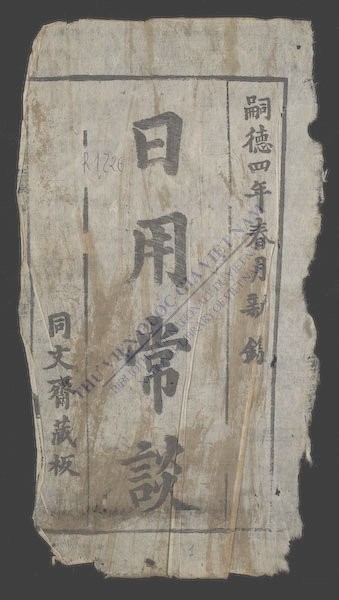 嗣德四年春月新鐫
日用常談
同文齋藏板
R.1726
THƯ VIỆN QUỐC GIA VIỆT NAM
1